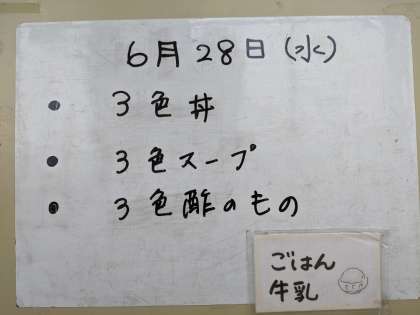 6月28日(水)
・ 3色丼
・ 3色スープ
・ 3色酢のもの
ごはん
牛乳